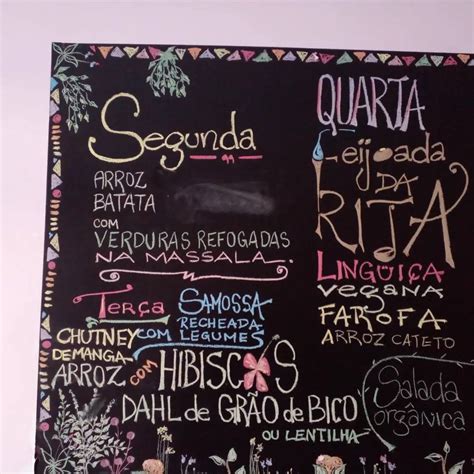 Segunda
ARROZ
BATATA
COM
VERDURAS REFOGADAS
NA MASSALA.
Terça
SAMOSSA
RECHEADA
COM LEGUMES
CHUTNEY
DE MANGA
ARROZ COM HIBISCOS
DAHL de GRÃO de BICO
OU LENTILHA
QUARTA
Feijoada
DA
RITA
LINGÜIÇA
VEGANA
FAROFA
ARROZ CATETO
Salada
orgânica